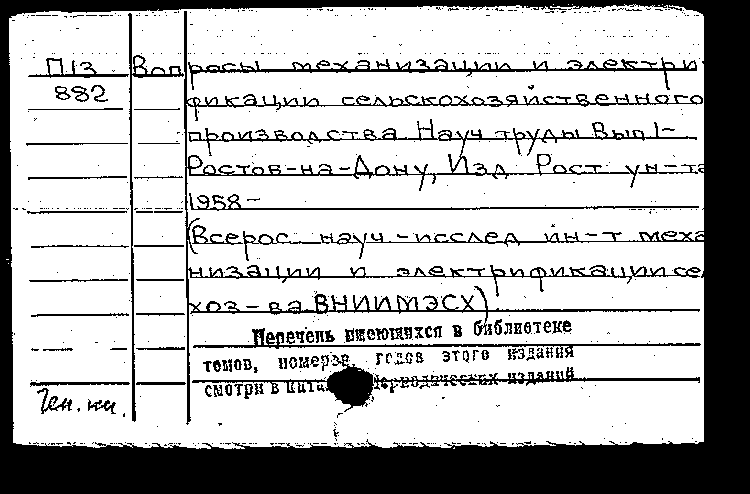 П13 Вопросы механизации и электри
882 фикации сельскохозяйственного
производства Науч труды Вып 1-
Ростов-на-Дону, Изд Рост ун-та
1958-
(Всерос науч-исслед ин-т меха
низации и электрификации се
хоз-ва ВНИИМЭСХ)
Перечень имеющихся в библиотеке
томов, номеров, годов этого издания
смотри в периодических изданий
Ген. кат.